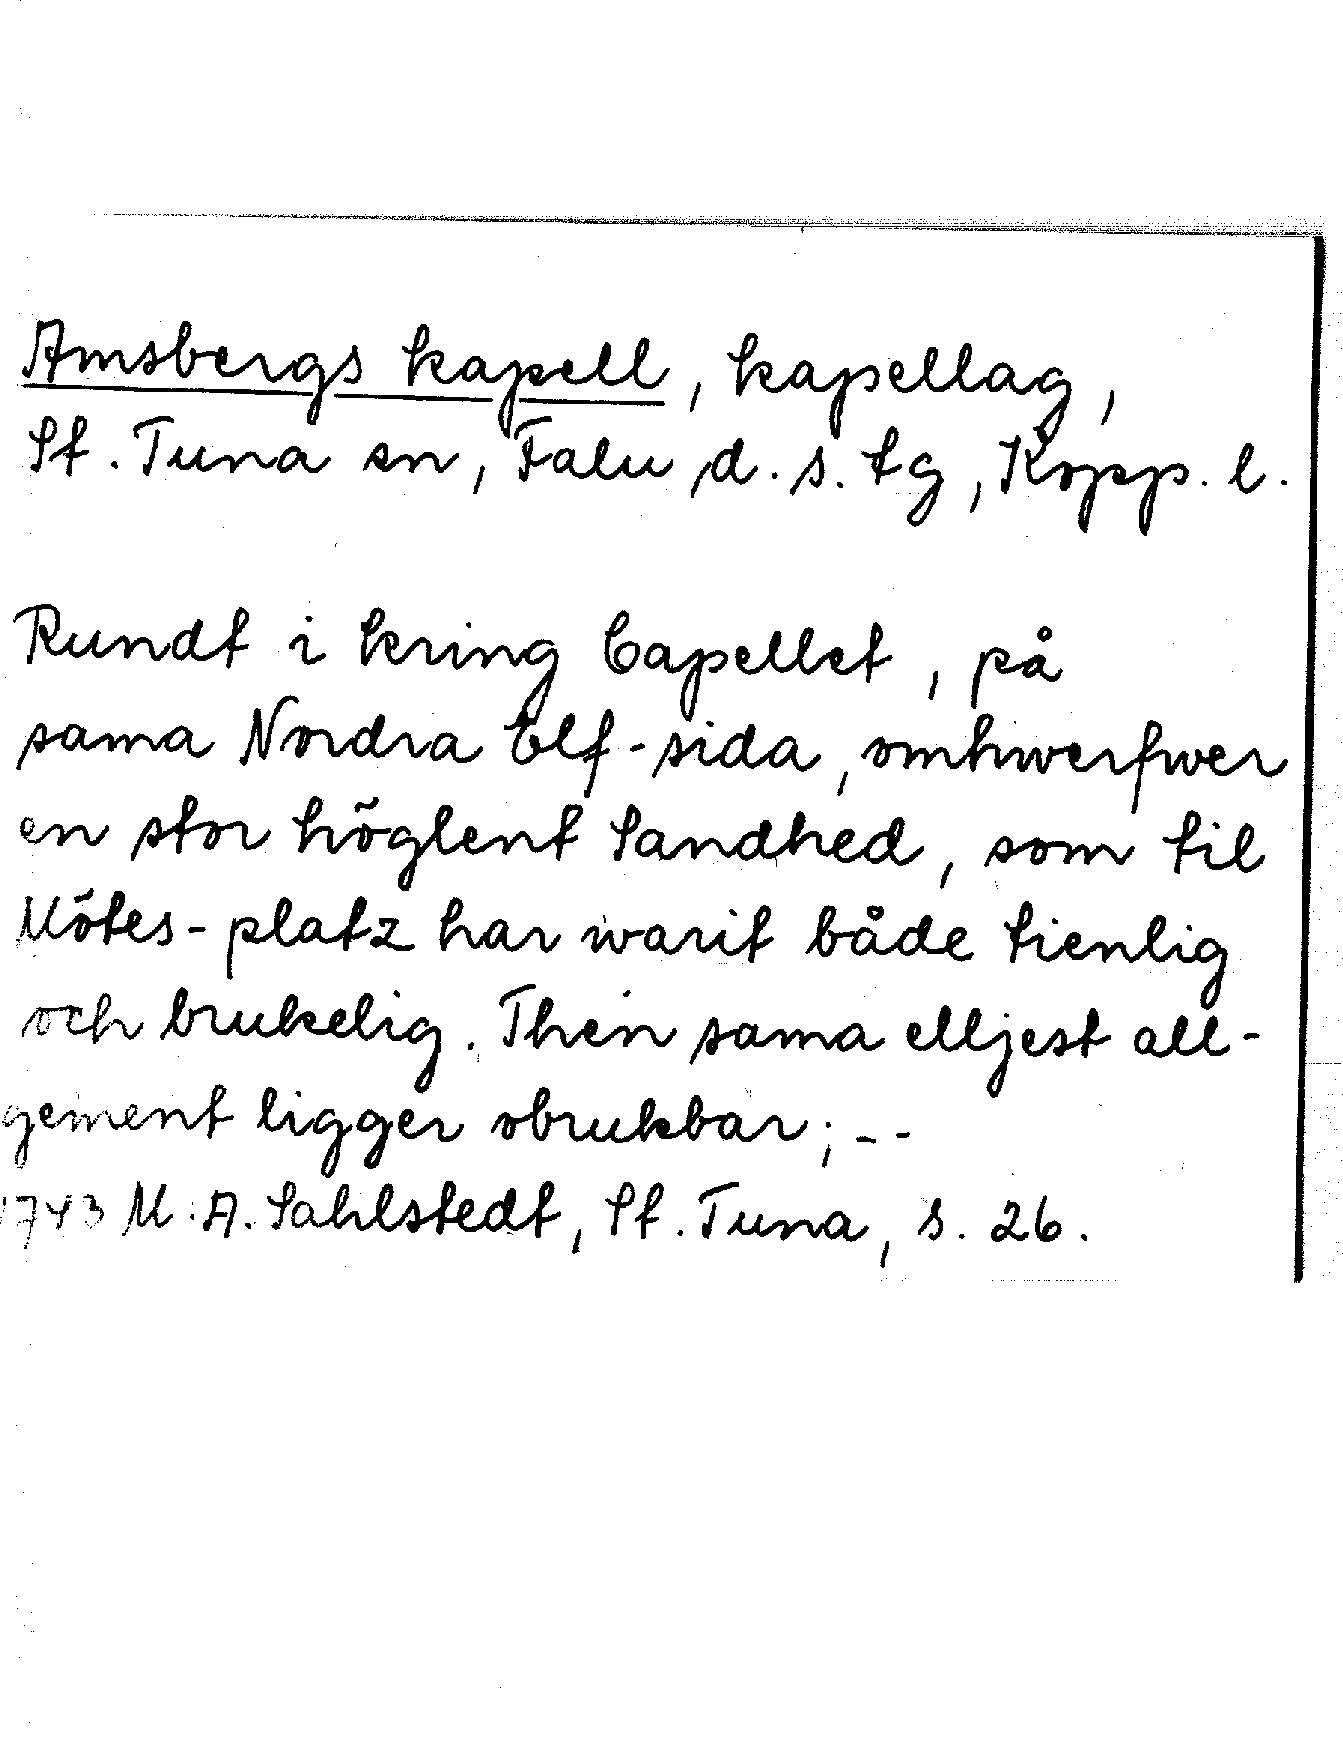 Amsbergs kapell, kapellag,
St. Tuna sn, Falu d.s. tg, Kopp. l.
Rundt i kring Capellet, på
sama Nordra Elf-sida, omhwerfwer
en stor höglent Sandhed, som til
Mötes-platz har warit både tienlig
och brukelig. Then sama elljest all-
gement ligger obrukbar; --
1743 M. A. Sahlstedt, St. Tuna, s. 26.